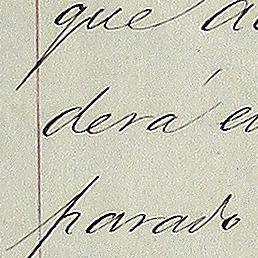 que
derá
parado